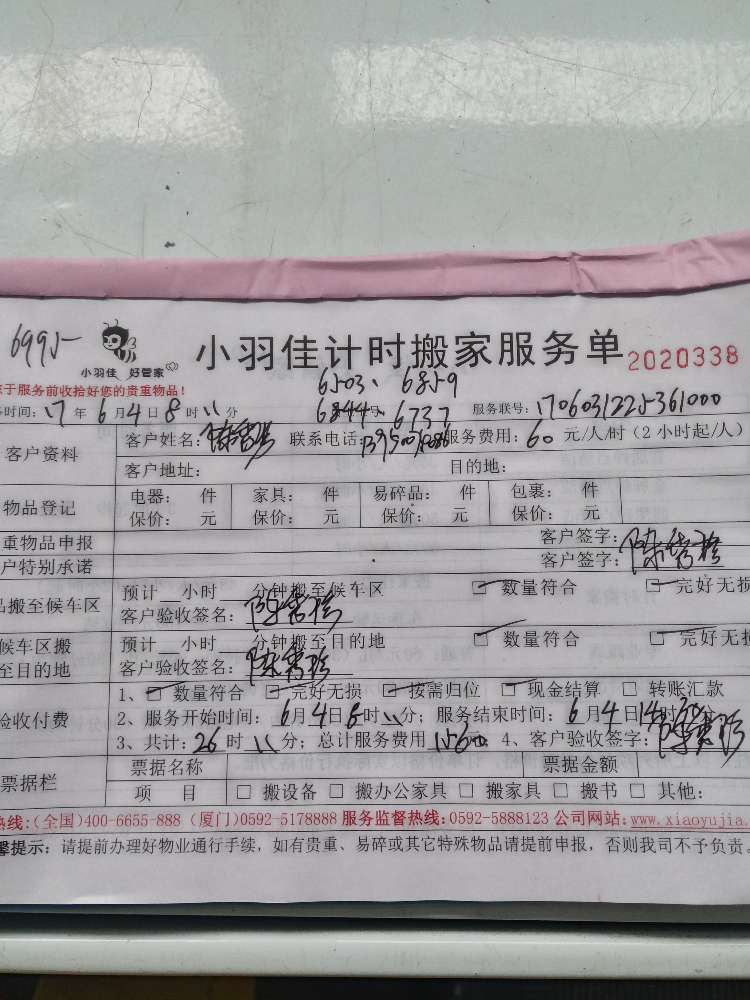 6995
小羽佳 好管家
小羽佳计时搬家服务单 2020338
于服务前收拾好您的贵重物品!
6503、6859
时间:17年6月4日8时 分 6844、6737 服务联号:1706031225361000
客户资料 客户姓名: 联系电话: 服务费用:60元/人/时(2小时起/人)
客户地址: 目的地:
物品登记 电器: 件 家具: 件 易碎品: 件 包裹: 件
保价: 元 保价: 元 保价: 元 保价: 元
重物品申报 客户签字:
户特别承诺 客户签字:
品搬至候车区 预计__小时__分钟搬至候车区 数量符合 完好无损
客户验收签名:
候车区搬至目的地 预计__小时__分钟搬至目的地 数量符合 完好无损
客户验收签名:
验收付费 1、数量符合 完好无损 按需归位 现金结算 转账汇款
2、服务开始时间:6月4日8时 分;服务结束时间:6月4日14时30分
3、共计:26时 分;总计服务费用1560元 4、客户验收签字:
票据栏 票据名称 票据金额
项 目 搬设备 搬办公家具 搬家具 搬书 其他:
热线:(全国)400-6655-888 (厦门)0592-5178888 服务监督热线:0592-5888123 公司网站:www.xiaoyujia.
馨提示:请提前办理好物业通行手续,如有贵重、易碎或其它特殊物品请提前申报,否则我司不予负责。